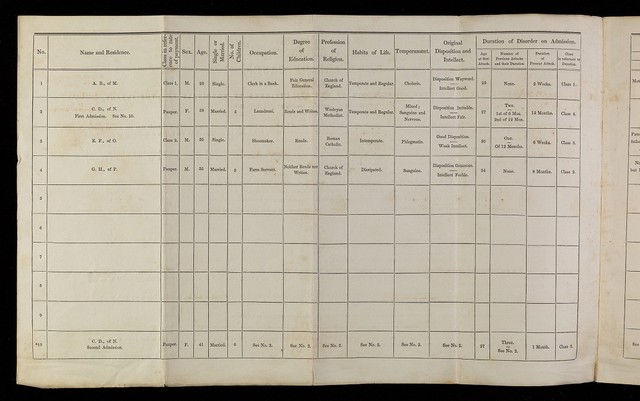 No.
Name and Residence.
Class in refer-
ence to rate
of payment.
Sex.
Age.
Single or
Married.
No. of
Children.
Occupation.
Degree
of
Education.
Profession
of
Religion.
Habits of Life.
Temperament.
Original
Disposition and
Intellect.
Duration of Disorder on Admission.
Age
at first
Attack.
Number of
Previous Attacks
and their Duration.
Duration
of
Present Attack.
Class
in reference to
Duration.
1
A. B., of M.
Class 1.
M.
Single.
Clerk in a Bank.
Fair General
Education.
Church of
England.
Temperate and Regular.
Choleric.
Disposition Wayward.
Intellect Good.
None.
2 Weeks.
Class 1.
2
C. D., of N.
First Admission. See No. 10.
Pauper.
F.
Married.
Laundress.
Reads and Writes.
Wesleyan
Methodist.
Temperate and Regular.
Mixed;
Sanguine and
Nervous.
Disposition Irritable.
Intellect Fair.
27
Two.
1st of 6 Mos.
2nd of 12 Mos.
Class 4.
3
E. F., of O.
Class 2.
M.
Single.
Shoemaker.
Reads.
Roman
Catholic.
Intemperate.
Phlegmatic.
Good Disposition.
Weak Intellect.
One.
Of 12 Months.
6 Weeks.
Class 3.
4
G. H., of P.
Pauper.
M.
35
Married.
Farm Servant.
Neither Reads nor
Writes.
Church of
England.
Dissipated.
Sanguine.
Disposition Generous.
Intellect Feeble.
34
None.
8 Months.
Class 2.
5
6
7
8
9
*10
C. D., of N.
Second Admission.
Pauper.
F.
41
Married.
6
See No. 2.
See No. 2.
See No. 2.
See No. 2.
See No. 2.
See No. 2.
27
Three.
See No. 2.
1 Month.
Class 3.